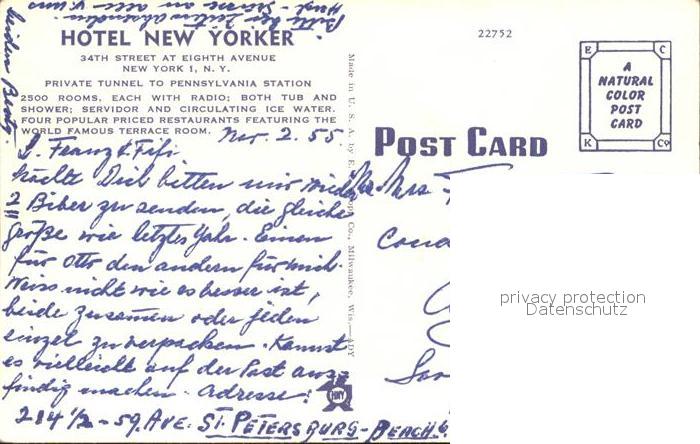 HOTEL NEW YORKER
34TH STREET AT EIGHTH AVENUE
NEW YORK 1, N. Y.
PRIVATE TUNNEL TO PENNSYLVANIA STATION
2500 ROOMS, EACH WITH RADIO; BOTH TUB AND
SHOWER; SERVIDOR AND CIRCULATING ICE WATER.
FOUR POPULAR PRICED RESTAURANTS FEATURING THE
WORLD FAMOUS TERRACE ROOM.
Nov. 2. 55.
L. Franz & Fifi
Möchte Dich bitten mir wieder
2 Biber zu senden, die gleiche
größe wie letztes Jahr. Einen
für Otto den andern für mich.
Weiss nicht wie es besser ist,
beide zusammen oder jeden
einzel zu verpacken. Kannst
es vielleicht auf der Post aus=
findig machen. Adresse:
214 1/2 - 59. AVE. ST. PETERSBURG - BEACH. 6.
Made in U. S. A. by E. C. Kropp Co., Milwaukee, Wis.
22752
E C
A
NATURAL
COLOR
POST
CARD
K Co
POST CARD
Mr. Mrs
privacy protection
Datenschutz